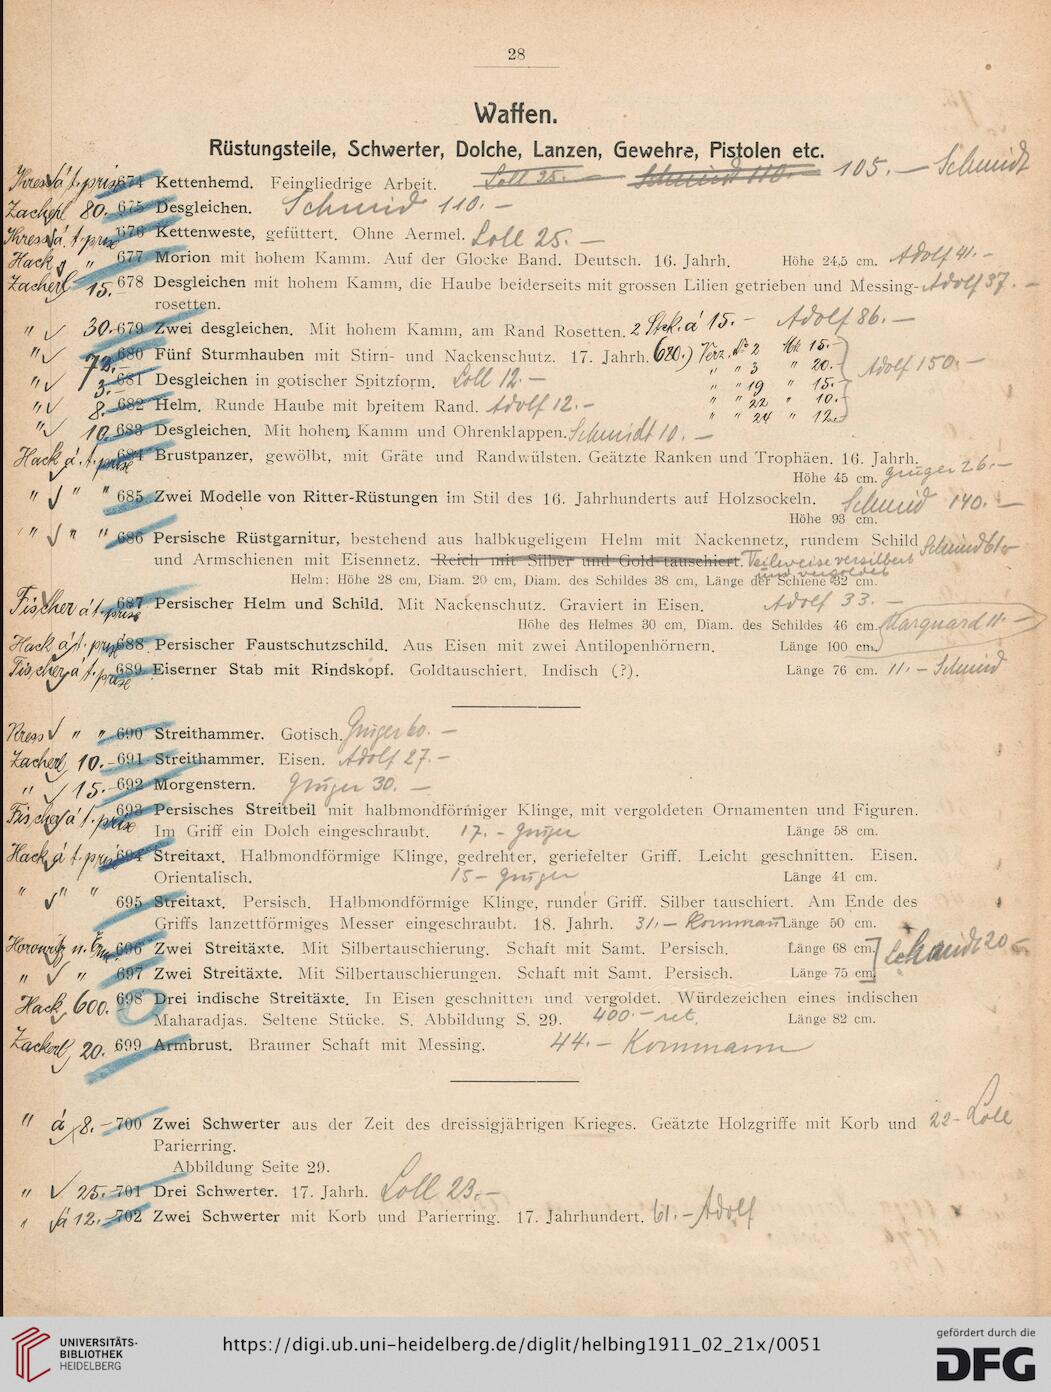 28
Waffen.
Rüstungsteile, Schwerter, Dolche, Lanzen, Gewehre, Pistolen etc.
Kress á t. prix 674 Kettenhemd. Feingliedrige Arbeit. Loll 25.- Schmid 110.- 105.- Schmidt
Zackerl 80.- 675 Desgleichen. Schmid 110.-
Kress á t. prix 676 Kettenweste, gefüttert. Ohne Aermel. Loll 25.-
Hack " 677 Morion mit hohem Kamm. Auf der Glocke Band. Deutsch. 16. Jahrh. Höhe 24,5 cm. Adolf 41.-
Zackerl 15. 678 Desgleichen mit hohem Kamm, die Haube beiderseits mit grossen Lilien getrieben und Messing- Adolf 37.-
rosetten.
" 30.- 679 Zwei desgleichen. Mit hohem Kamm, am Rand Rosetten. 2 Stck. á 15.- Adolf 86.-
" 680 Fünf Sturmhauben mit Stirn- und Nackenschutz. 17. Jahrh. 680.) Verz. No 2 Mk 15.-
" " 3 " 20.- Adolf 150.-
" 3.- 681 Desgleichen in gotischer Spitzform. Loll 12.- " " 19 " 15.-
" 8.- 682 Helm. Runde Haube mit breitem Rand. Adolf 12.- " " 22 " 10.-
" " 24 " 12.-
" 10. 683 Desgleichen. Mit hohem Kamm und Ohrenklappen. Schmidt 10.-
Hack á t. prix 684 Brustpanzer, gewölbt, mit Gräte und Randwülsten. Geätzte Ranken und Trophäen. 16. Jahrh.
Höhe 45 cm. Gruger 26.-
" " " 685 Zwei Modelle von Ritter-Rüstungen im Stil des 16. Jahrhunderts auf Holzsockeln. Schmid 140.-
Höhe 93 cm.
" " " 686 Persische Rüstgarnitur, bestehend aus halbkugeligem Helm mit Nackennetz, rundem Schild Schmid 61.-
und Armschienen mit Eisennetz. Reich mit Silber und Gold tauschiert. Teilweise versilbert
und vergoldet
Helm: Höhe 28 cm, Diam. 20 cm, Diam. des Schildes 38 cm, Länge der Schiene 32 cm.
Fischer á t. prix 687 Persischer Helm und Schild. Mit Nackenschutz. Graviert in Eisen. Adolf 33.-
Höhe des Helmes 30 cm, Diam. des Schildes 46 cm. Marguard 11.-
Hack á t. prix 688 Persischer Faustschutzschild. Aus Eisen mit zwei Antilopenhörnern. Länge 100 cm.
Fischer á t. prix 689 Eiserner Stab mit Rindskopf. Goldtauschiert. Indisch (?). Länge 76 cm. 11.- Schmid
Kress " " 690 Streithammer. Gotisch. Gruger 60.-
Zackerl 10.- 691 Streithammer. Eisen. Adolf 27.-
" 15.- 692 Morgenstern. Gruger 30.-
Fischer á t. prix 693 Persisches Streitbeil mit halbmondförmiger Klinge, mit vergoldeten Ornamenten und Figuren.
Im Griff ein Dolch eingeschraubt. 17.- Gruger Länge 58 cm.
Hack á t. prix 694 Streitaxt. Halbmondförmige Klinge, gedrehter, geriefelter Griff. Leicht geschnitten. Eisen.
Orientalisch. 15- Gruger Länge 41 cm.
" " " 695 Streitaxt. Persisch. Halbmondförmige Klinge, runder Griff. Silber tauschiert. Am Ende des
Griffs lanzettförmiges Messer eingeschraubt. 18. Jahrh. 31.- Kornmann Länge 50 cm.
Horowitz u. 696 Zwei Streitäxte. Mit Silbertauschierung. Schaft mit Samt. Persisch. Länge 68 cm. Schmidt 20.-
" " 697 Zwei Streitäxte. Mit Silbertauschierungen. Schaft mit Samt. Persisch. Länge 75 cm.
Hack 600. 698 Drei indische Streitäxte. In Eisen geschnitten und vergoldet. Würdezeichen eines indischen
Maharadjas. Seltene Stücke. S. Abbildung S. 29. 400.- ret. Länge 82 cm.
Zackerl 20. 699 Armbrust. Brauner Schaft mit Messing. 44.- Kornmann
" á 8.- 700 Zwei Schwerter aus der Zeit des dreissigjährigen Krieges. Geätzte Holzgriffe mit Korb und 22- Loll
Parierring.
Abbildung Seite 29.
" 25.- 701 Drei Schwerter. 17. Jahrh. Loll 23.-
" á 12.- 702 Zwei Schwerter mit Korb und Parierring. 17. Jahrhundert. 61.- Adolf
UNIVERSITÄTS-
BIBLIOTHEK
HEIDELBERG
https://digi.ub.uni-heidelberg.de/diglit/helbing1911_02_21x/0051
gefördert durch die
DFG